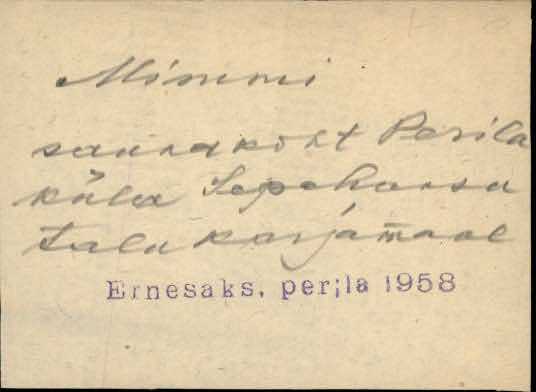 Mimmi
saunakoht Perila
küla Sepahansu
talu karjamaal
Ernesaks, per;la 1958